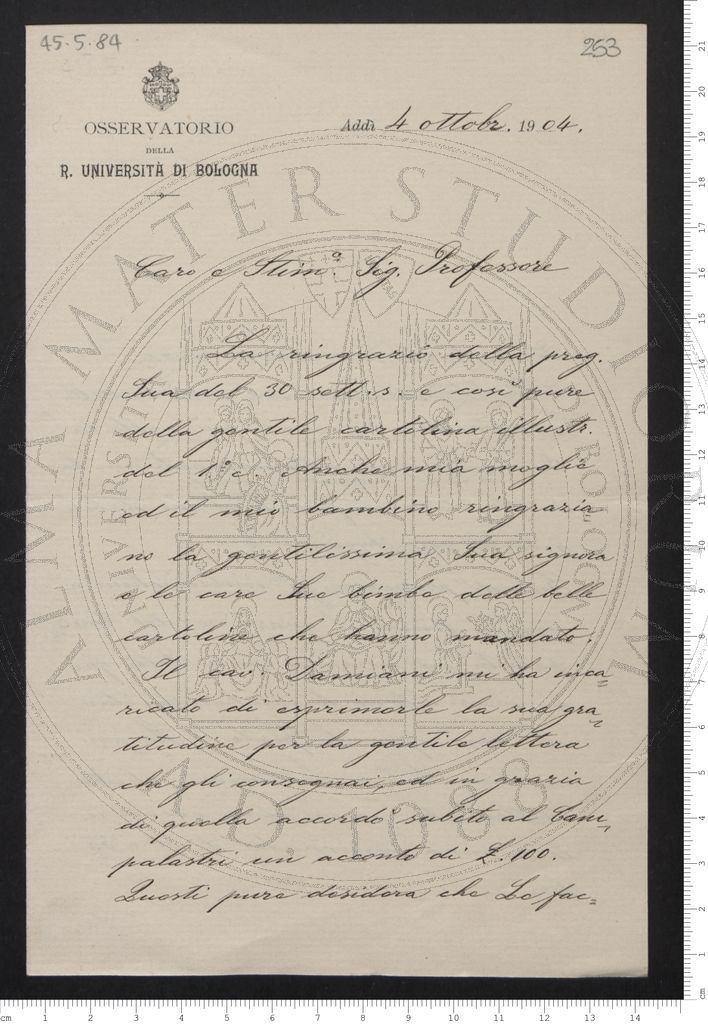 45.5.84
253
OSSERVATORIO
DELLA
R. UNIVERSITÀ DI BOLOGNA
Addì 4 ottobr. 1904.
Caro e Stim.º Sig. Professore
La ringrazio della preg.
Sua del 30 sett. s. e così pure
della gentile cartolina illustr.
del 1.º c. Anche mia moglie
ed il mio bambino ringrazia=
no la gentilissima Sua signora
e le care Sue bimbe delle belle
cartoline che hanno mandato.
Il cav. Damiani mi ha inca=
ricato di esprimerle la sua gra=
titudine per la gentile lettera
che gli consegnai, ed in grazia
di quella accordò subito al Cam=
palastri un acconto di £. 100.
Questi pure desidera che Le fac=
ALMA MATER STUDIORUM
A.D. 1088